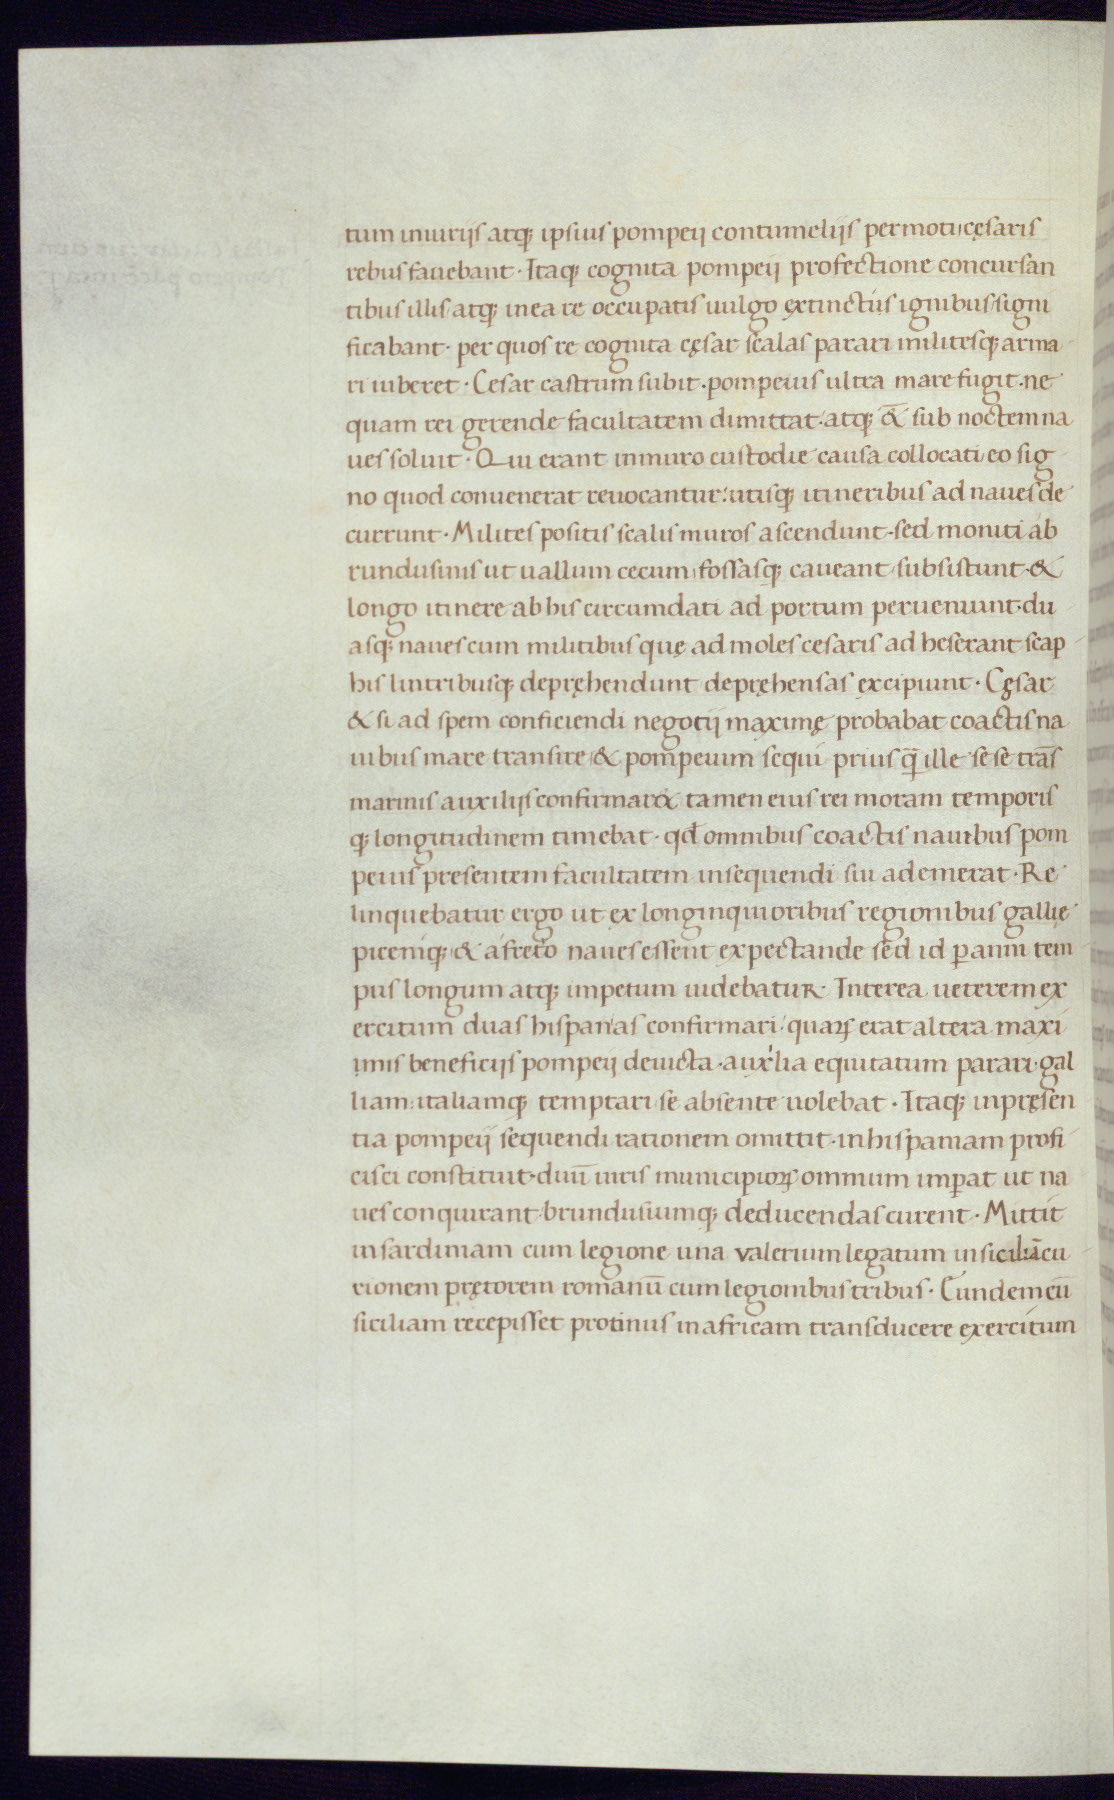 tum iniurijs atq; ipsius pompeij contumelijs permoti cęsaris
rebus favebant · Itaq; cognita pompeij profectione concursan
tibus illis atq; in ea re occupatis uulgo extinctis ignibus signi
ficabant · per quos re cognita cęsar scalas parari militesq; arma
ri iuberet · Cesar castrum subit · pompeius ultra mare fugit · ne
quam rei gerende facultatem dimittat · atq; & sub noctem na
ues soluit · Qui erant in muro custodie causa collocati eo sig
no quod convenerat revocantur · utisq; itineribus ad naues de
currunt · Milites positis scalis muros ascendunt · sed moniti ab
rundusinis ut uallum cecum fossasq; caveant subsistunt · &
longo itinere ab his circumdati ad portum perueniunt · du
asq; naues cum militibus quę ad moles cesaris ad heserant scap
his lintribusq; depręhendunt depręhensas excipiunt · Cęsar
& si ad spem conficiendi negotij maximę probabat coactis na
uibus mare transire & pompeium sequi prius q̄ ille sese trās
marinis auxilijs confirmar& tamen eius rei moram temporis
q; longitudinem timebat · qđ omnibus coactis navibus pom
peius presentem facultatem insequendi siu ademerat · Re
linquebatur ergo ut ex longinquioribus regionibus gallię
piceniq; & a freto naues essent expectande sed id p anni tem
pus longum atq; impetum uidebatur · Interea ueterem ex
ercitum duas hispanias confirmari quarꝝ erat altera maxi
imis beneficijs pompeij devicta · auxilia equitatum parari · gal
liam italiamq; temptari se absente uolebat · Itaq; in pręsen
tia pompeij sequendi rationem omittit · in hispaniam profi
cisci constituit · duū uiris municipiorꝝ omnium impat ut na
ues conquirant brundusiumq; deducendas curent · Mittit
in sardiniam cum legione una valerium legatum in siciliā cu
rionem prętorem romanū cum legionibus tribus · Eundem cū
siciliam recepisset protinus in africam transducere exercitum